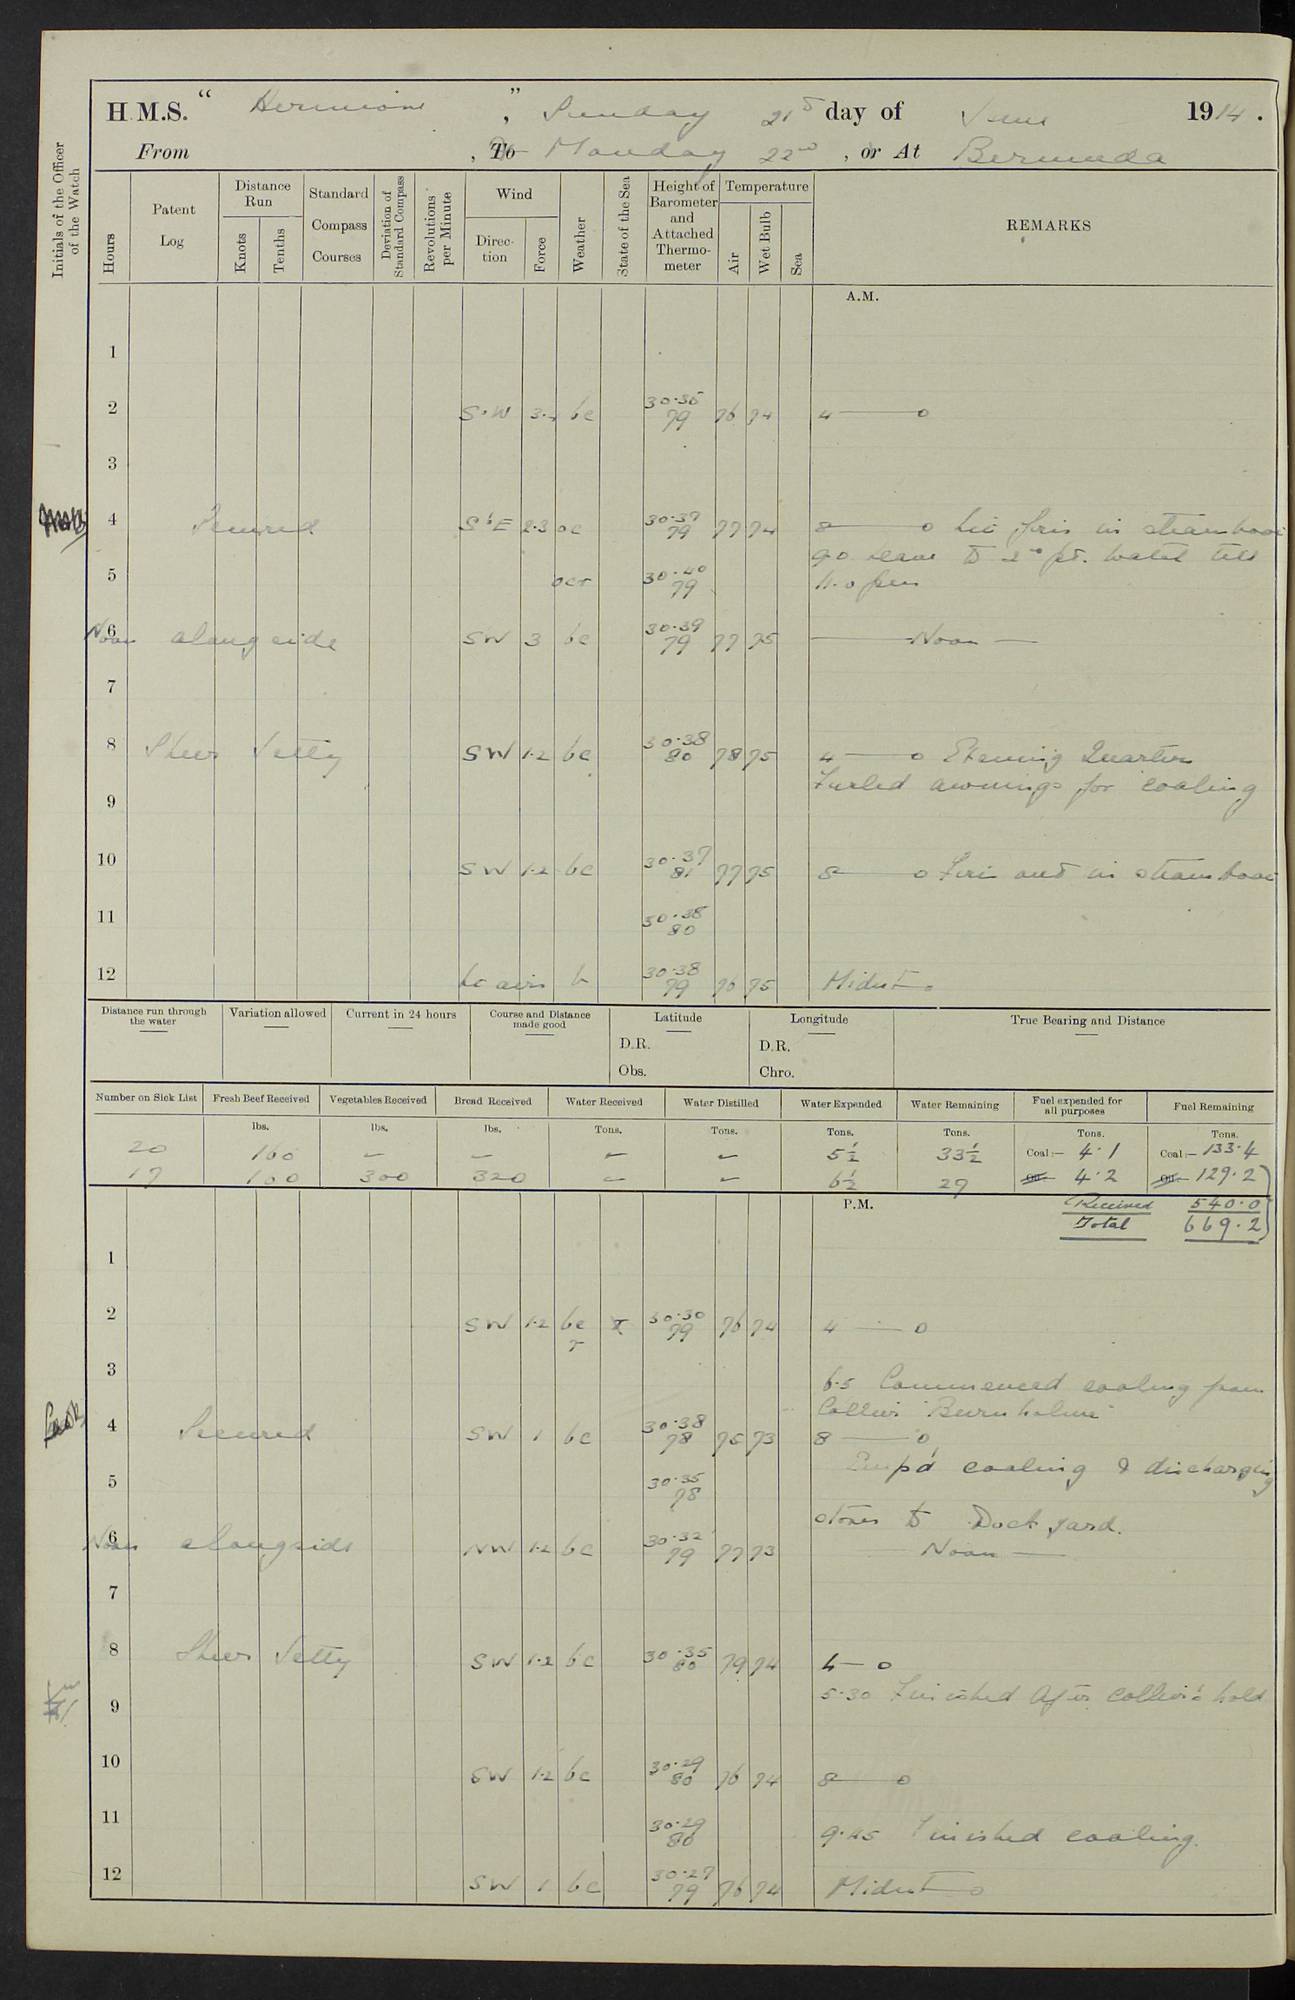 H.M.S. "Hermione", Sunday 21st day of June 1914.
From , To Monday 22nd, or At Bermuda
Initials of the Officer of the Watch
Hours
Patent Log
Distance Run
Knots
Tenths
Standard Compass Courses
Deviation of Standard Compass
Revolutions per Minute
Wind
Direction
Force
Weather
State of the Sea
Height of Barometer and Attached Thermometer
Temperature
Air
Wet Bulb
Sea
REMARKS
A.M.
1
2 bc 30.36 79 76 74 4 — 0
3
4 Secured SbE 2.3 oc 30.37 79 77 74 8 — 0 Lit fires in steamboat
9.0 Leave to 2nd pt. Watch till
5 ocr 30.40 79
6 Noon alongside SW 3 bc 30.39 79 77 75 — Noon —
7
8 Sheer Jetty SW 1.2 bc 30.38 80 78 75 4 — 0 Evening Quarters
9 Furled awnings for coaling
10 SW 1.2 bc 30.37 81 77 75 8 — 0 Fires out in steamboat
11 30.38 80
12 Lt airs b 30.38 79 76 75 Midnt — 0
Distance run through the water
Variation allowed
Current in 24 hours
Course and Distance made good
Latitude
D.R.
Obs.
Longitude
D.R.
Chro.
True Bearing and Distance
Number on Sick List Fresh Beef Received Vegetables Received Bread Received Water Received Water Distilled Water Expended Water Remaining Fuel expended for all purposes Fuel Remaining
lbs. lbs. lbs. Tons. Tons. Tons. Tons. Tons. Tons.
20 160 – – – – 5½ 33½ Coal:– 4.1 Coal:– 133.4
17 160 300 320 – – 6½ 27 Oil:– 4.2 Oil:– 129.2
P.M.
Received 540.0
Total 669.2
1
2 SW 1.2 bc r 30.30 79 76 74 4 — 0
3 6.5 Commenced coaling from
Collier "Burnholme"
4 Secured SW 1 bc 30.38 78 75 73 8 — 0
Emp'd coaling & discharging
5 30.35 78
stores to Dockyard.
6 Noon alongside NW 1.2 bc 30.32 79 77 73 — Noon —
7
8 Sheer Jetty SW 1.2 bc 30.35 80 79 74 4 — 0
9 5.30 Finished After collier's hold
10 SW 1.2 bc 30.29 80 76 74 8 — 0
11 30.29 80 9.45 Finished coaling.
12 SW 1 bc 30.27 79 76 74 Midnt — 0